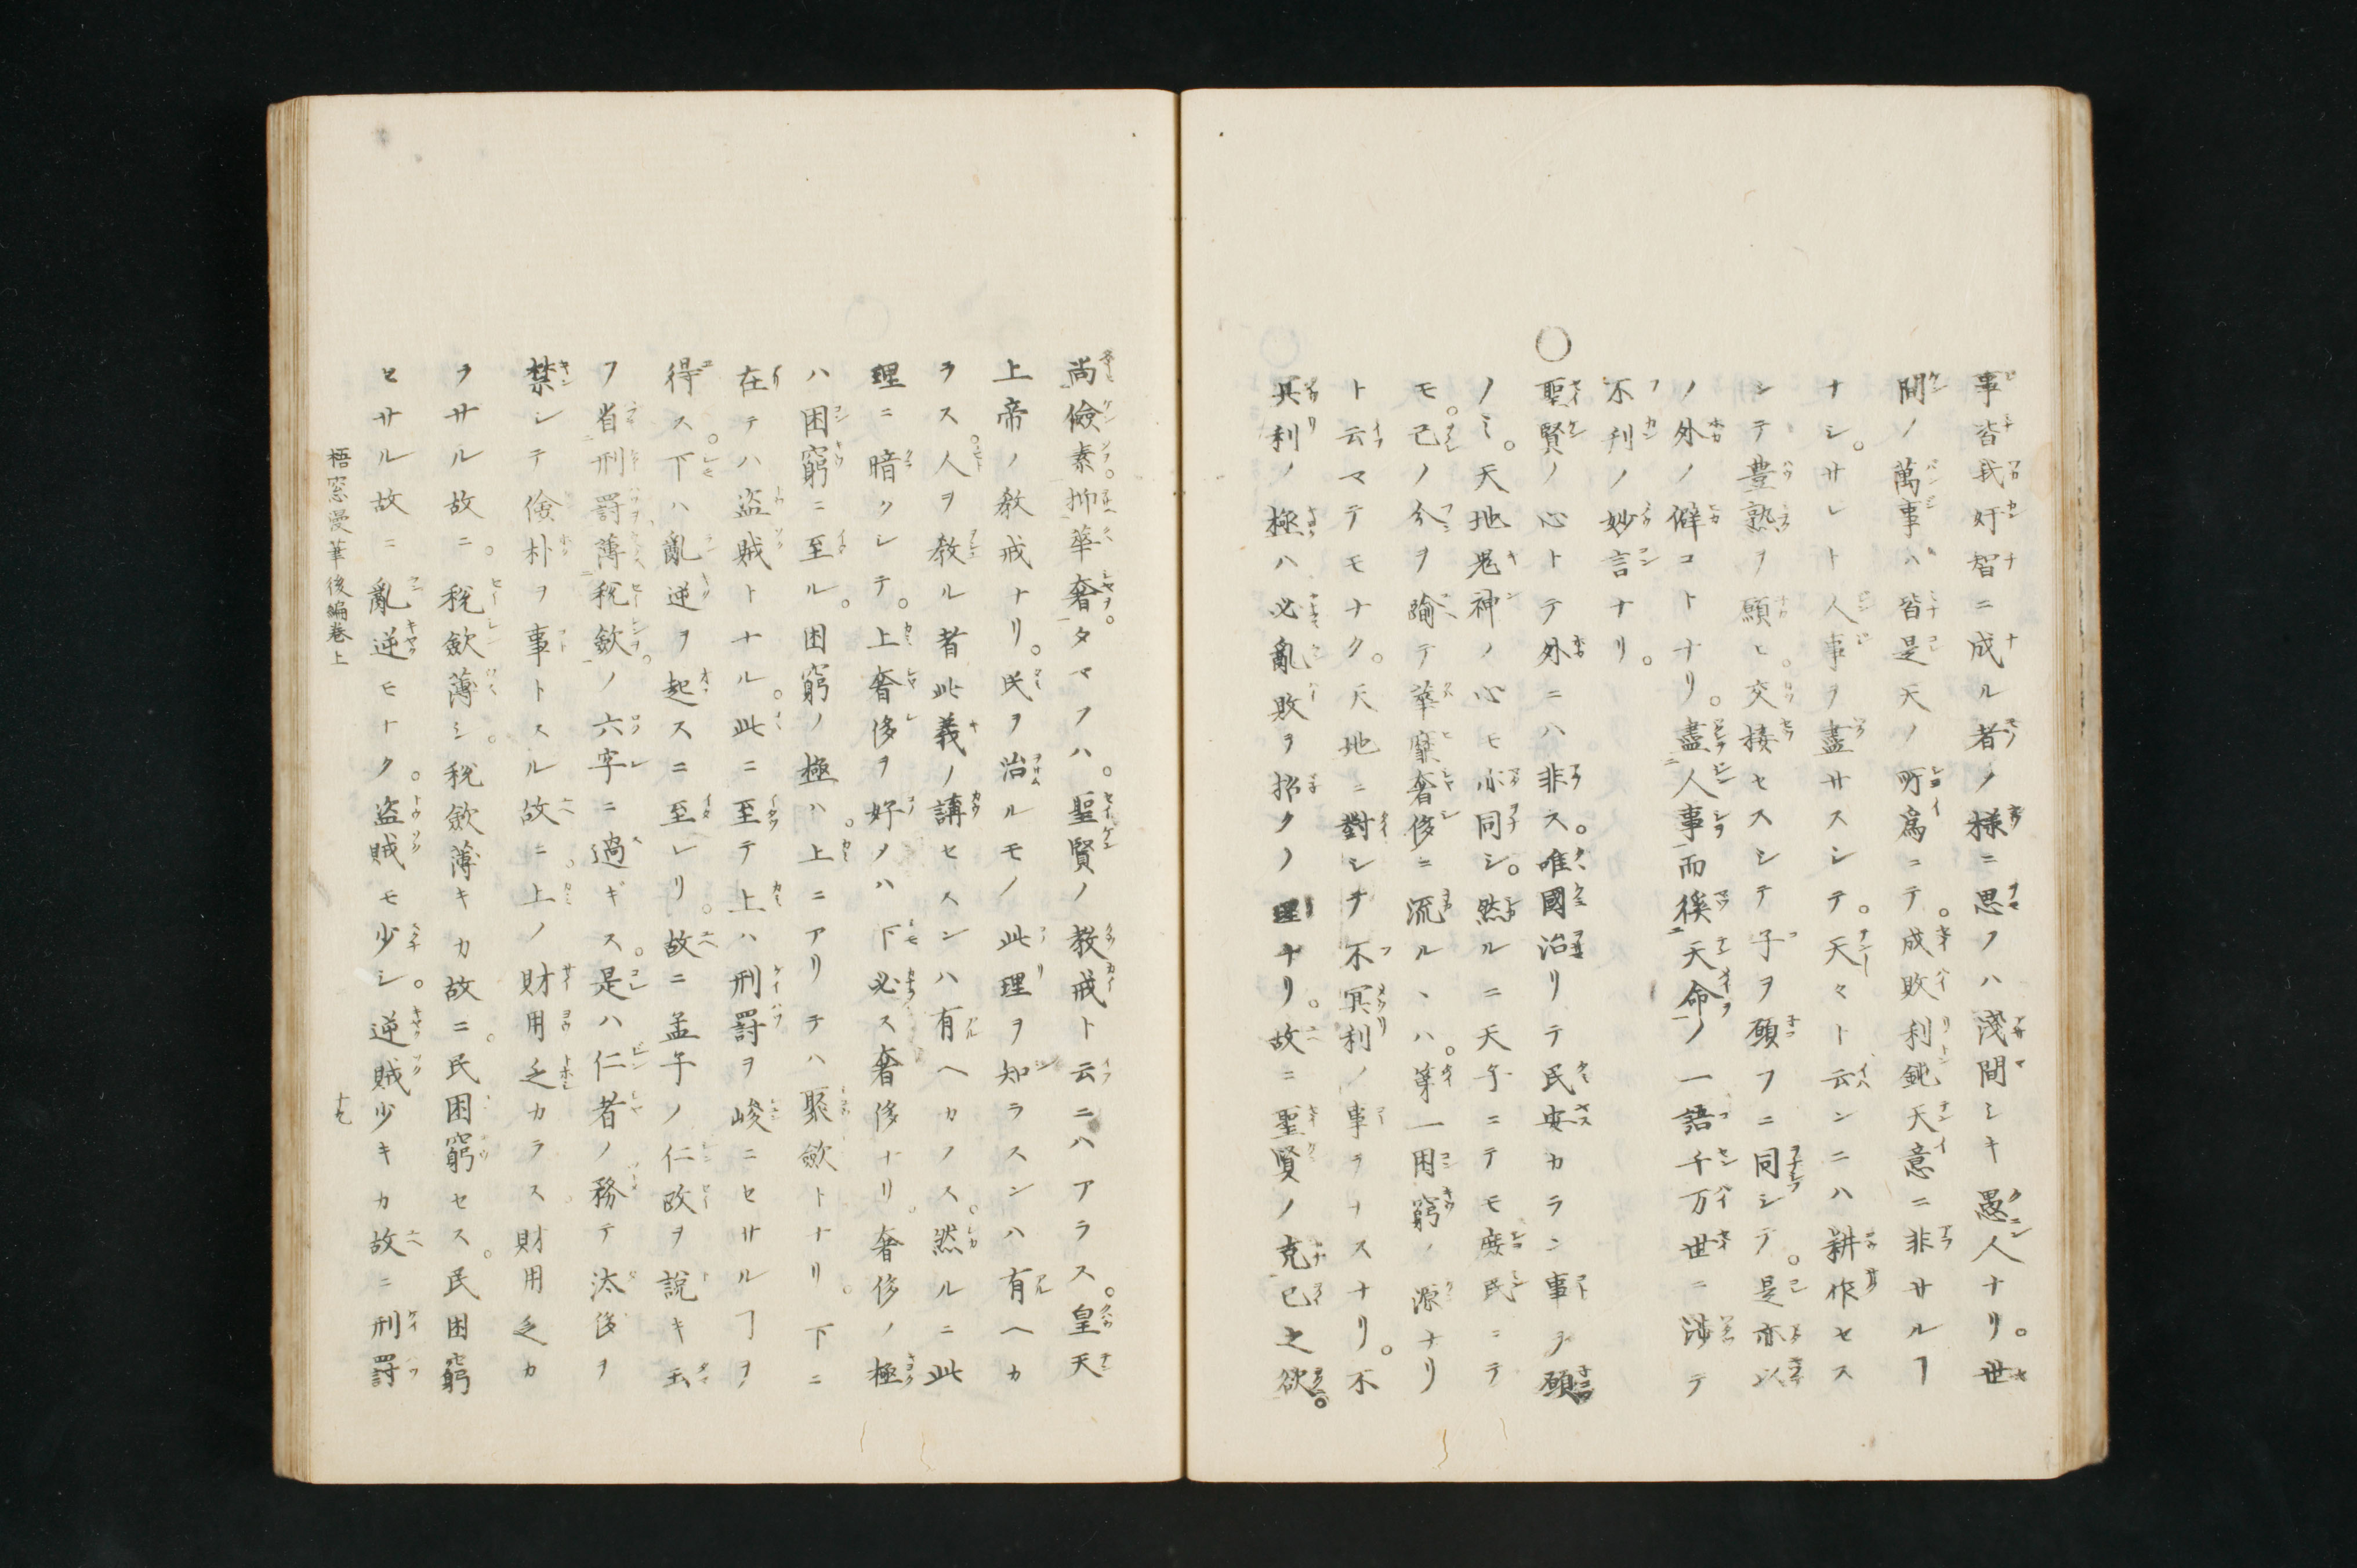 事皆我奸智ニ成ル者ノ様ニ思フハ淺間シキ愚人ナリ。世
間ノ萬事ハ皆是天ノ所爲ニテ。成敗利鈍天意ニ非サルヿ
ナシ。サレト人事ヲ盡サスシテ。天々ト云ンニハ耕作セス
シテ豊熟ヲ願ヒ。交接セスシテ子ヲ願フニ同シテ。是亦以
ノ外ノ僻コトナリ。盡人事而徯天命ノ一語千万世ニ渉テ
不刊ノ妙言ナリ。
○聖賢ノ心トテ外ニハ非ス。唯國治リテ民安カラン事ヲ願
ノミ。天地鬼神ノ心モ亦同シ。然ルニ天子ニテモ庶民ニテ
モ。己ノ分ヲ踰テ華靡奢侈ニ流ルヽハ。第一困窮ノ源ナリ
ト云マテモナク。天地ニ對シテ不冥利ノ事ヲナスナリ。不
冥利ノ極ハ必亂敗ヲ招クノ理ナリ。故ニ聖賢ノ克己之欲。
尚儉素。抑華奢。タマフハ。聖賢ノ教戒ト云ニハアラス。皇天
上帝ノ教戒ナリ。民ヲ治ルモノ此理ヲ知ラスンハ有ヘカ
ラス。人ヲ教ル者此義ノ講セスンハ有ヘカラス。然ルニ此
理ニ暗クシテ。上奢侈ヲ好メハ下必ス奢侈ナリ。奢侈ノ極
ハ困窮ニ至ル。困窮ノ極ハ。上ニアリテハ聚斂トナリ。下ニ
在テハ盗賊トナル。此ニ至テ上ハ刑罸ヲ峻ニセサルヿヲ
得ス。下ハ亂逆ヲ起スニ至レリ。故ニ孟子ノ仁政ヲ説キ玉
フ省刑罸薄税斂。ノ六字ニ過ギス。是ハ仁者ノ務テ汰侈ヲ
禁シテ儉朴ヲ事トスル故ニ。上ノ財用乏カラス。財用乏カ
ラサル故ニ。税斂薄シ。税斂薄キカ故ニ。民困窮セス。民困窮
セサル故ニ亂逆モナク。盗賊モ少シ。逆賊少キカ故ニ刑罸
梧窓漫筆後編巻上
十七